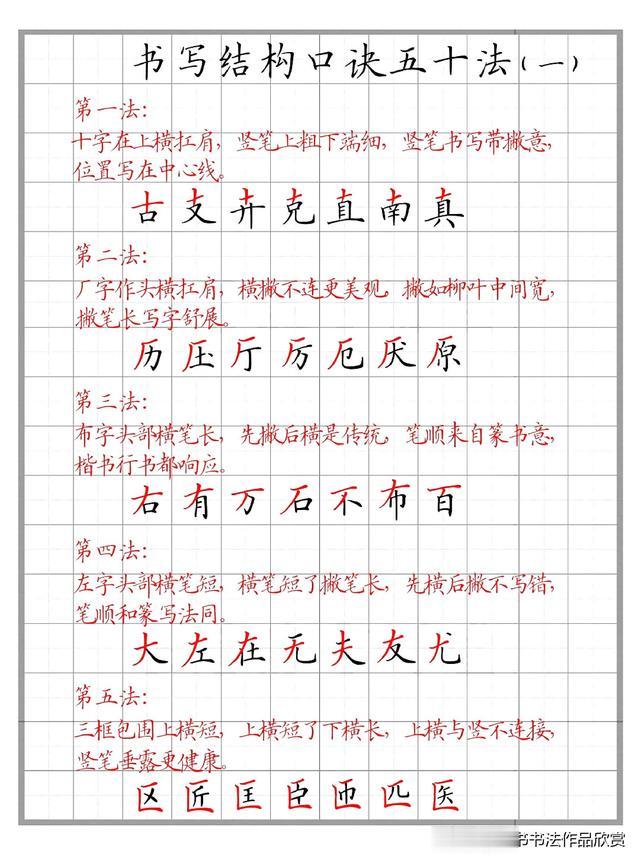 书写结构口诀五十法(一)
第一法:
十字在上横扛肩,竖笔上粗下端细,竖笔书写带撇意,
位置写在中心线。
古支卉克直南真
第二法:
厂字作头横扛肩,横撇不连更美观,撇如柳叶中间宽,
撇笔长写字舒展。
历压厅厉厄厌原
第三法:
布字头部横笔长,先撇后横是传统,笔顺来自篆书意,
楷书行书都响应。
右有万石不布百
第四法:
左字头部横笔短,横笔短了撇笔长,先横后撇不写错,
笔顺和篆写法同。
大左在无夫友尤
第五法:
三框包围上横短,上横短了下横长,上横与竖不连接,
竖笔垂露更健康。
区匠匡臣匝匹医
书书法作品欣赏